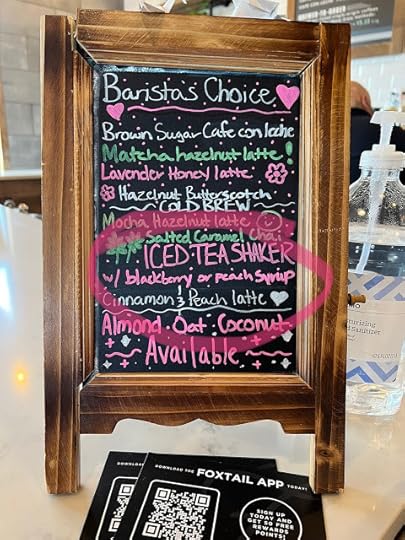 Baristas Choice
Brown Sugar Cafe con leche
Matcha hazelnut latte !
Lavender Honey latte
Hazelnut Butterscotch
COLD BREW
Mocha Hazelnut latte
Salted Caramel Chai
ICED TEA SHAKER
w/ blackberry or peach syrup
Cinnamon & Peach latte
Almond · Oat · Coconut
Available
DOWNLOAD THE FOXTAIL APP TODAY!
SIGN UP
TODAY AND
GET 50 FREE
REWARDS
POINTS!
DOWNLOAD